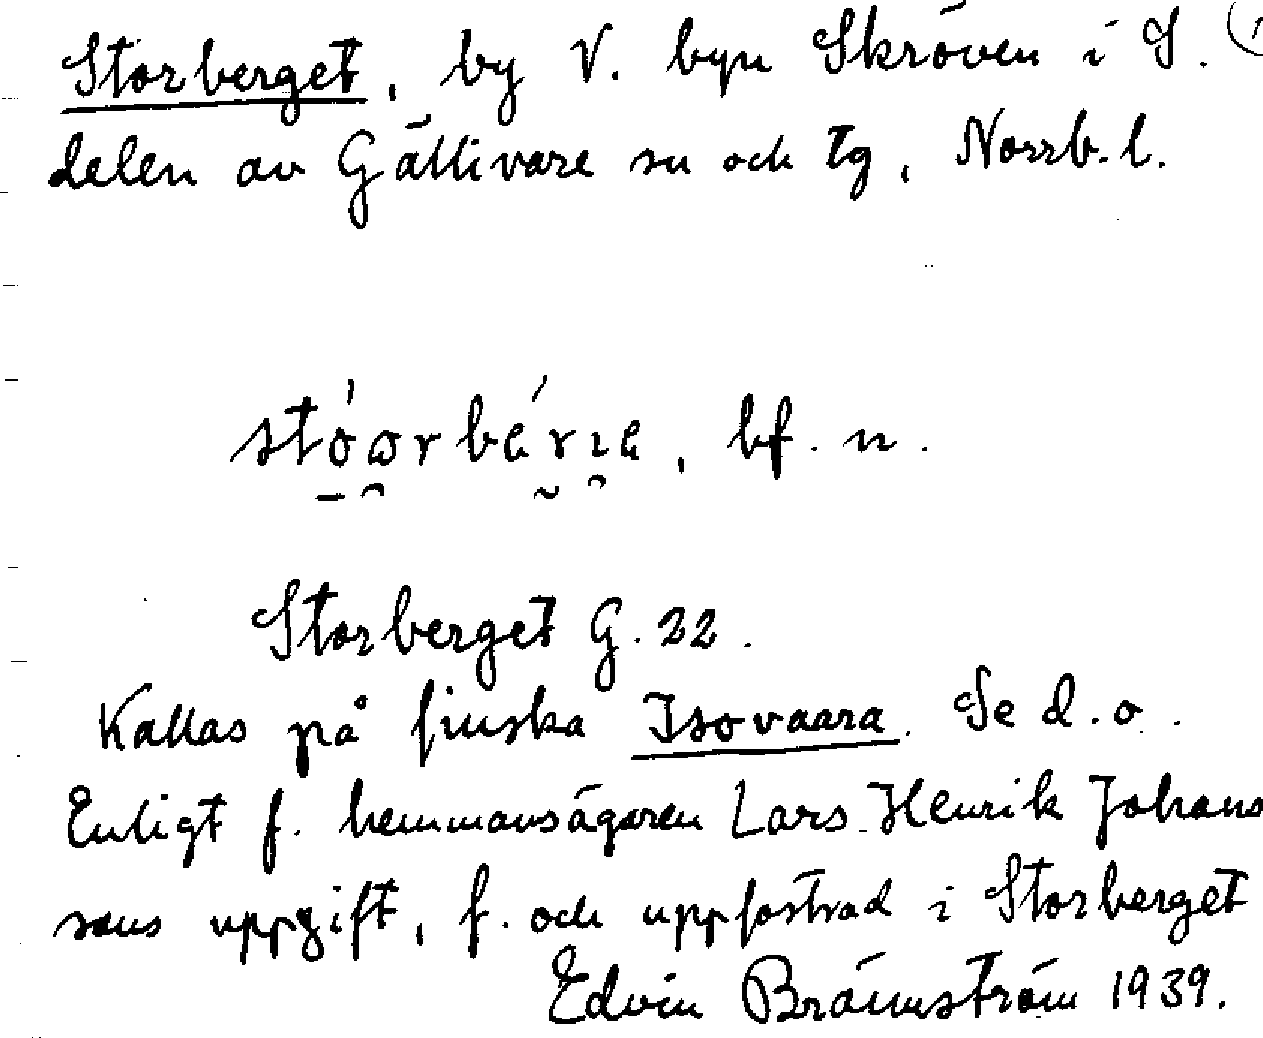 Storberget, by V. byn Skröven i S. (1
delen av Gällivare sn och tg, Norrb. l.
bf. n.
Storberget G. 22.
Kallas på finska Isovaara. Se d. o.
Enligt f. hemmansägaren Lars Henrik Johans
sons uppgift, f. och uppfostrad i Storberget
Edvin Brännström 1939.